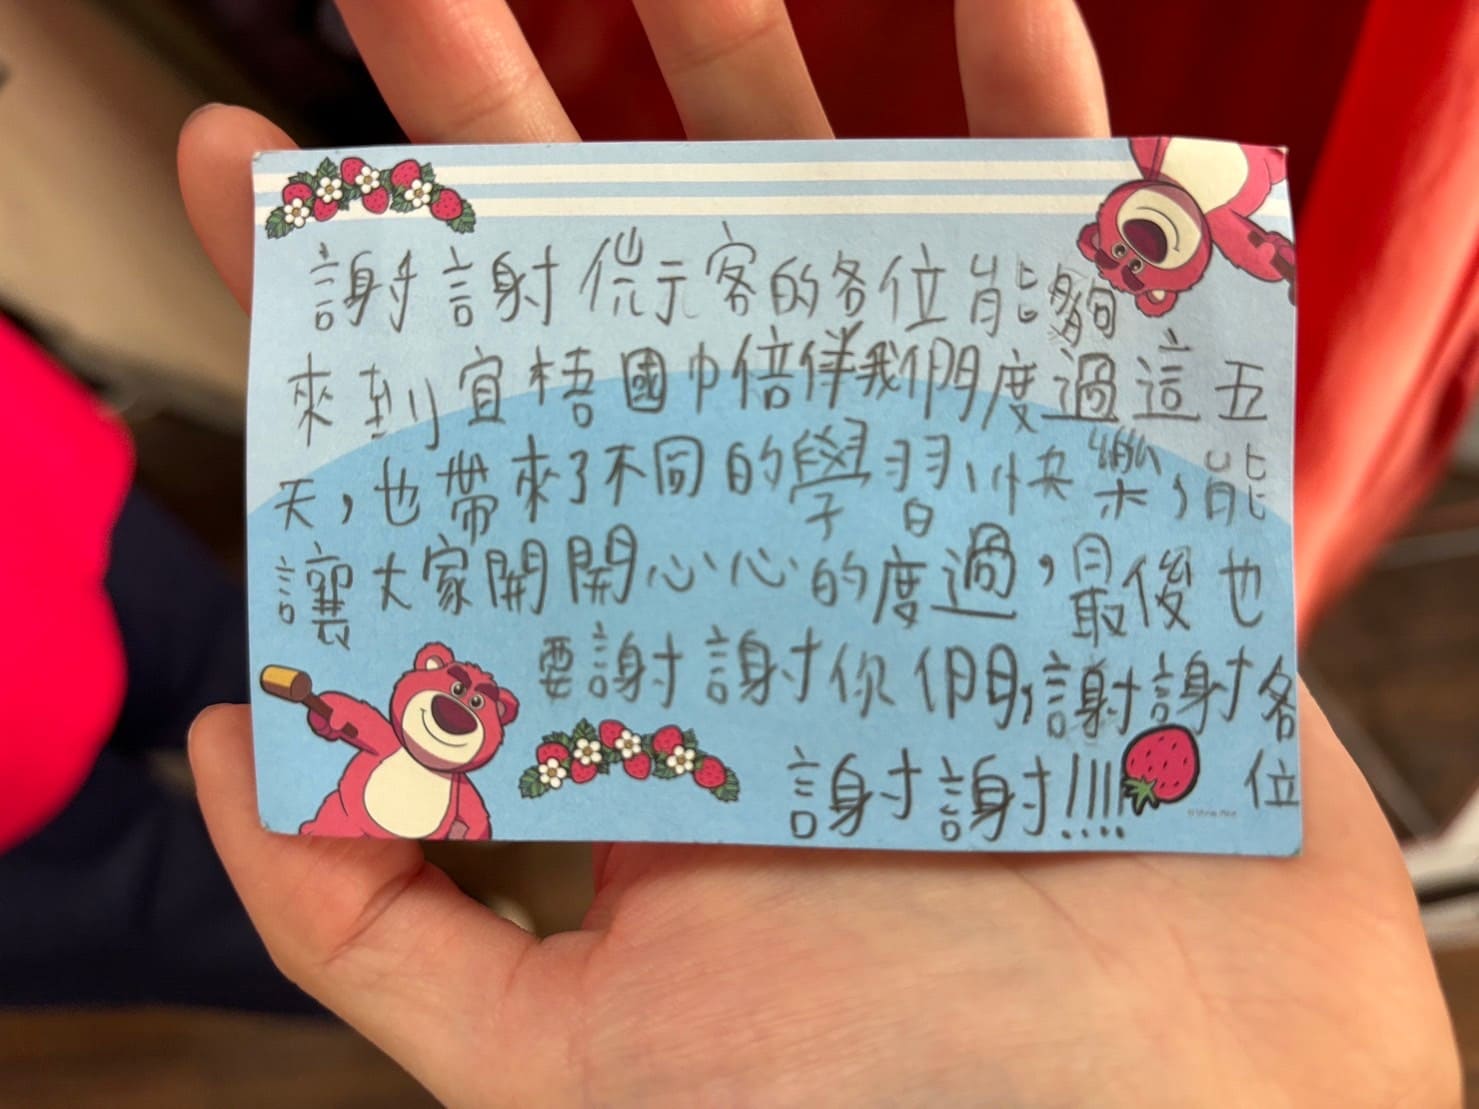 謝謝客的各位能夠
來到宜梧國巾倍伴我們度過這五
天，也帶來了不同的學習快樂，能
讓大家開開心心的度過，最後也
要謝謝你們，謝謝各位
謝謝!!!!